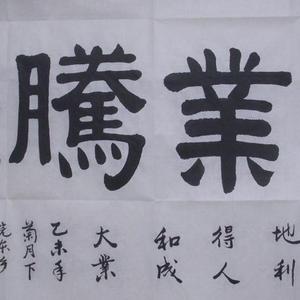 業騰
地利
得人
和成
大業
乙未年
菊月下